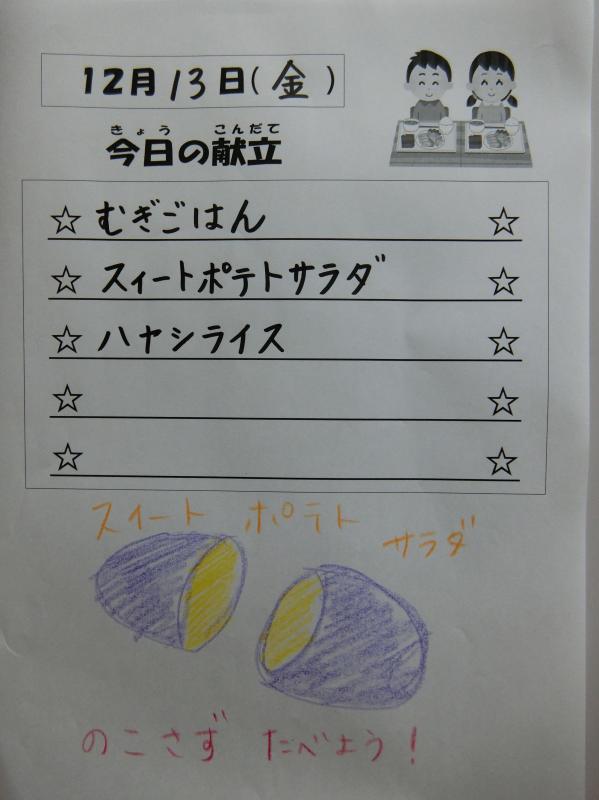 12月13日(金)
きょう こんだて
今日の献立
☆ むぎごはん ☆
☆ スィートポテトサラダ ☆
☆ ハヤシライス ☆
☆ ☆
☆ ☆
スィート ポテト サラダ
のこさず たべよう!